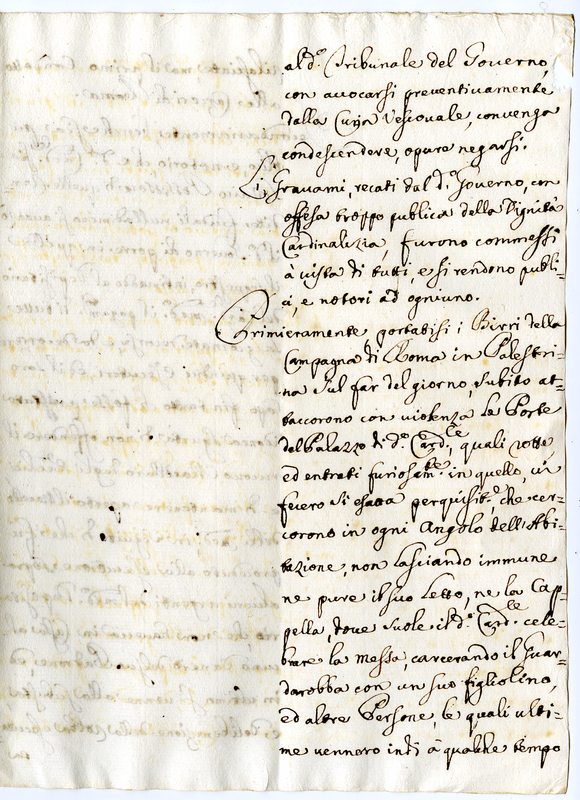 al d.º Tribunale del Governo,
con avocarsi preventivamente
dalla Curia Vescovale, convenga
condescendere, opure negarsi.
Li Gravami, recati dal d.º Governo, con
offesa troppo publica della Dignità
Cardinalizia, furono commessi
à vista di tutti, e si rendono publi=
ci, e notori ad ogniuno.
Primieramente portatisi i Birri della
Campagna di Roma in Palestri=
na sul far del giorno, subito at=
taccorono con violenza le Porte
del Palazzo di d.º Card.le, quali rotte,
ed entrati furiosam.te in quello, vi
fecero sì esatta perquisit.e, che cer=
corono in ogni Angolo dell'Abi=
tazione, non lasciando immune
ne pure il suo Letto, ne la Cap=
pella, dove suole il d.º Card.le cele=
brare la Messa, carcerando il Guar=
darobba con un suo figliolino,
ed altre Persone, le quali ulti=
me vennero indi à qualche tempo